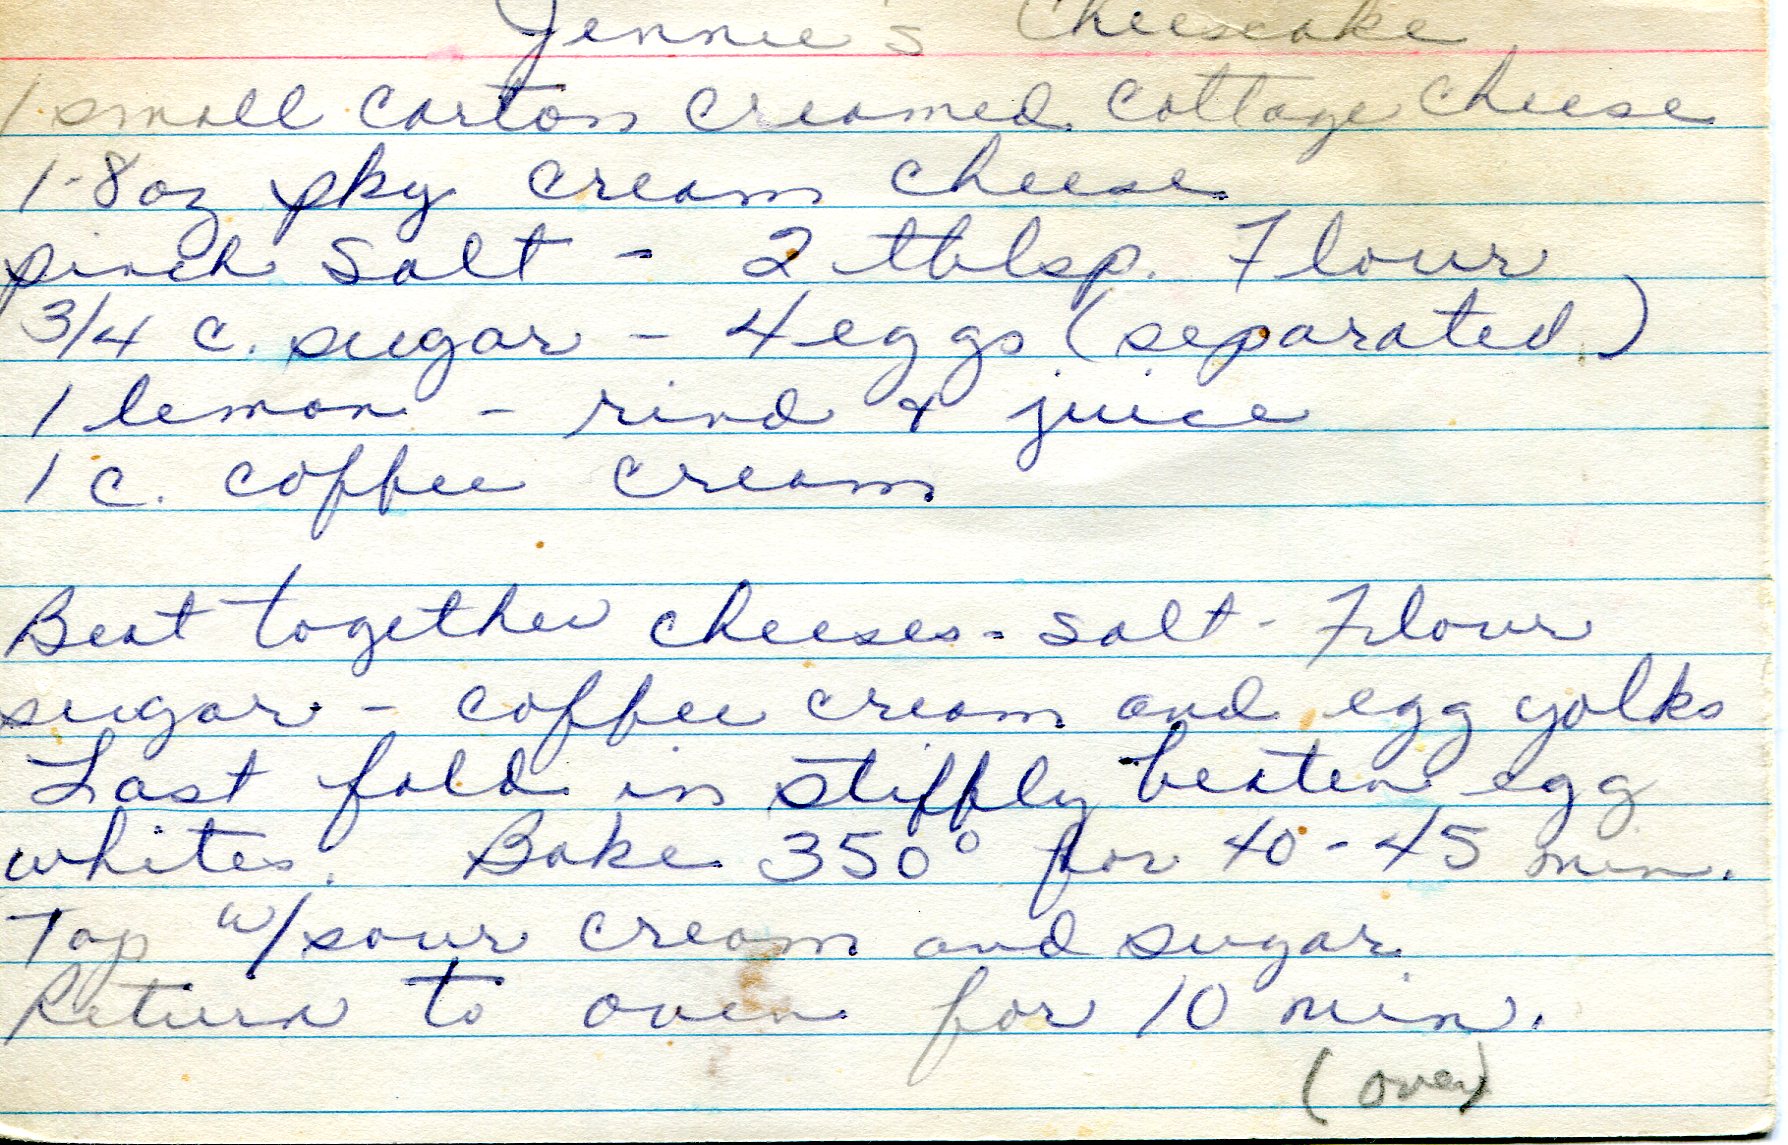 Jennie's Cheesecake
1 small carton creamed cottage cheese
1-8oz pkg cream cheese
pinch salt - 2 tblsp. Flour
3/4 c. sugar - 4 eggs (separated)
1 lemon - rind & juice
1 c. coffee cream
Beat together cheeses - salt - Flour
sugar - coffee cream and egg yolks
Last fold in stiffly beaten egg
whites. Bake 350° for 40-45 min.
Top w/sour cream and sugar
Return to oven for 10 min.
(over)